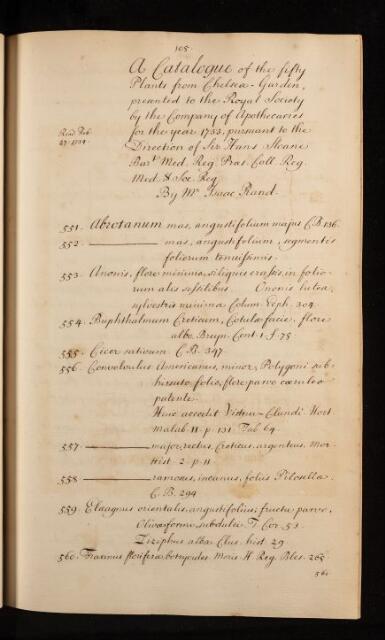 105.
A Catalogue of the fifty
Plants from Chelsea-Garden,
presented to the Royal Society
by the Company of Apothecaries
Read Feb. for the year 1733, pursuant to the
27. Direction of Sir Hans Sloane
Bart. Med. Reg. Præs. Coll. Reg.
Med. & Soc. Reg.
By Mr. Isaac Rand.
551. Abrotanum mas, angustifolium majus C.B. 136.
552. ——— mas, angustifolium, segmentis
foliorum tenuissimis.
553. Anonis, flore minimo, siliquis crassis, in folio-
rum alis sessilibus. Ononis lutea,
sylvestris minima Colum. Ecph. 304.
554. Buphthalmum Creticum, Cotulæ facie, flore
albo. Breyn. Cent. 1. f. 75
555. Cicer sativum C.B. 347.
556. Convolvulus Americanus, minor, Polygoni sub-
hirsuto folio, flore parvo cæruleo
patente.
Huic accedit Vistnu-Clandi Hort.
Malab. 11. p. 131. Tab. 64.
557. ——— major, rectus, Creticus, argenteus, Mor.
Hist. 2. p. 11.
558. ——— ramosus, incanus, foliis Pilosellæ.
C.B. 294
559. Elæagnus orientalis, angustifolius, fructu parvo,
Olivæformi subdulci. T. Cor. 53.
Ziziphus alba Clus. hist. 29
560. Fraxinus florifera, botryoides. Moris. H. Reg. Bles. 265
561.